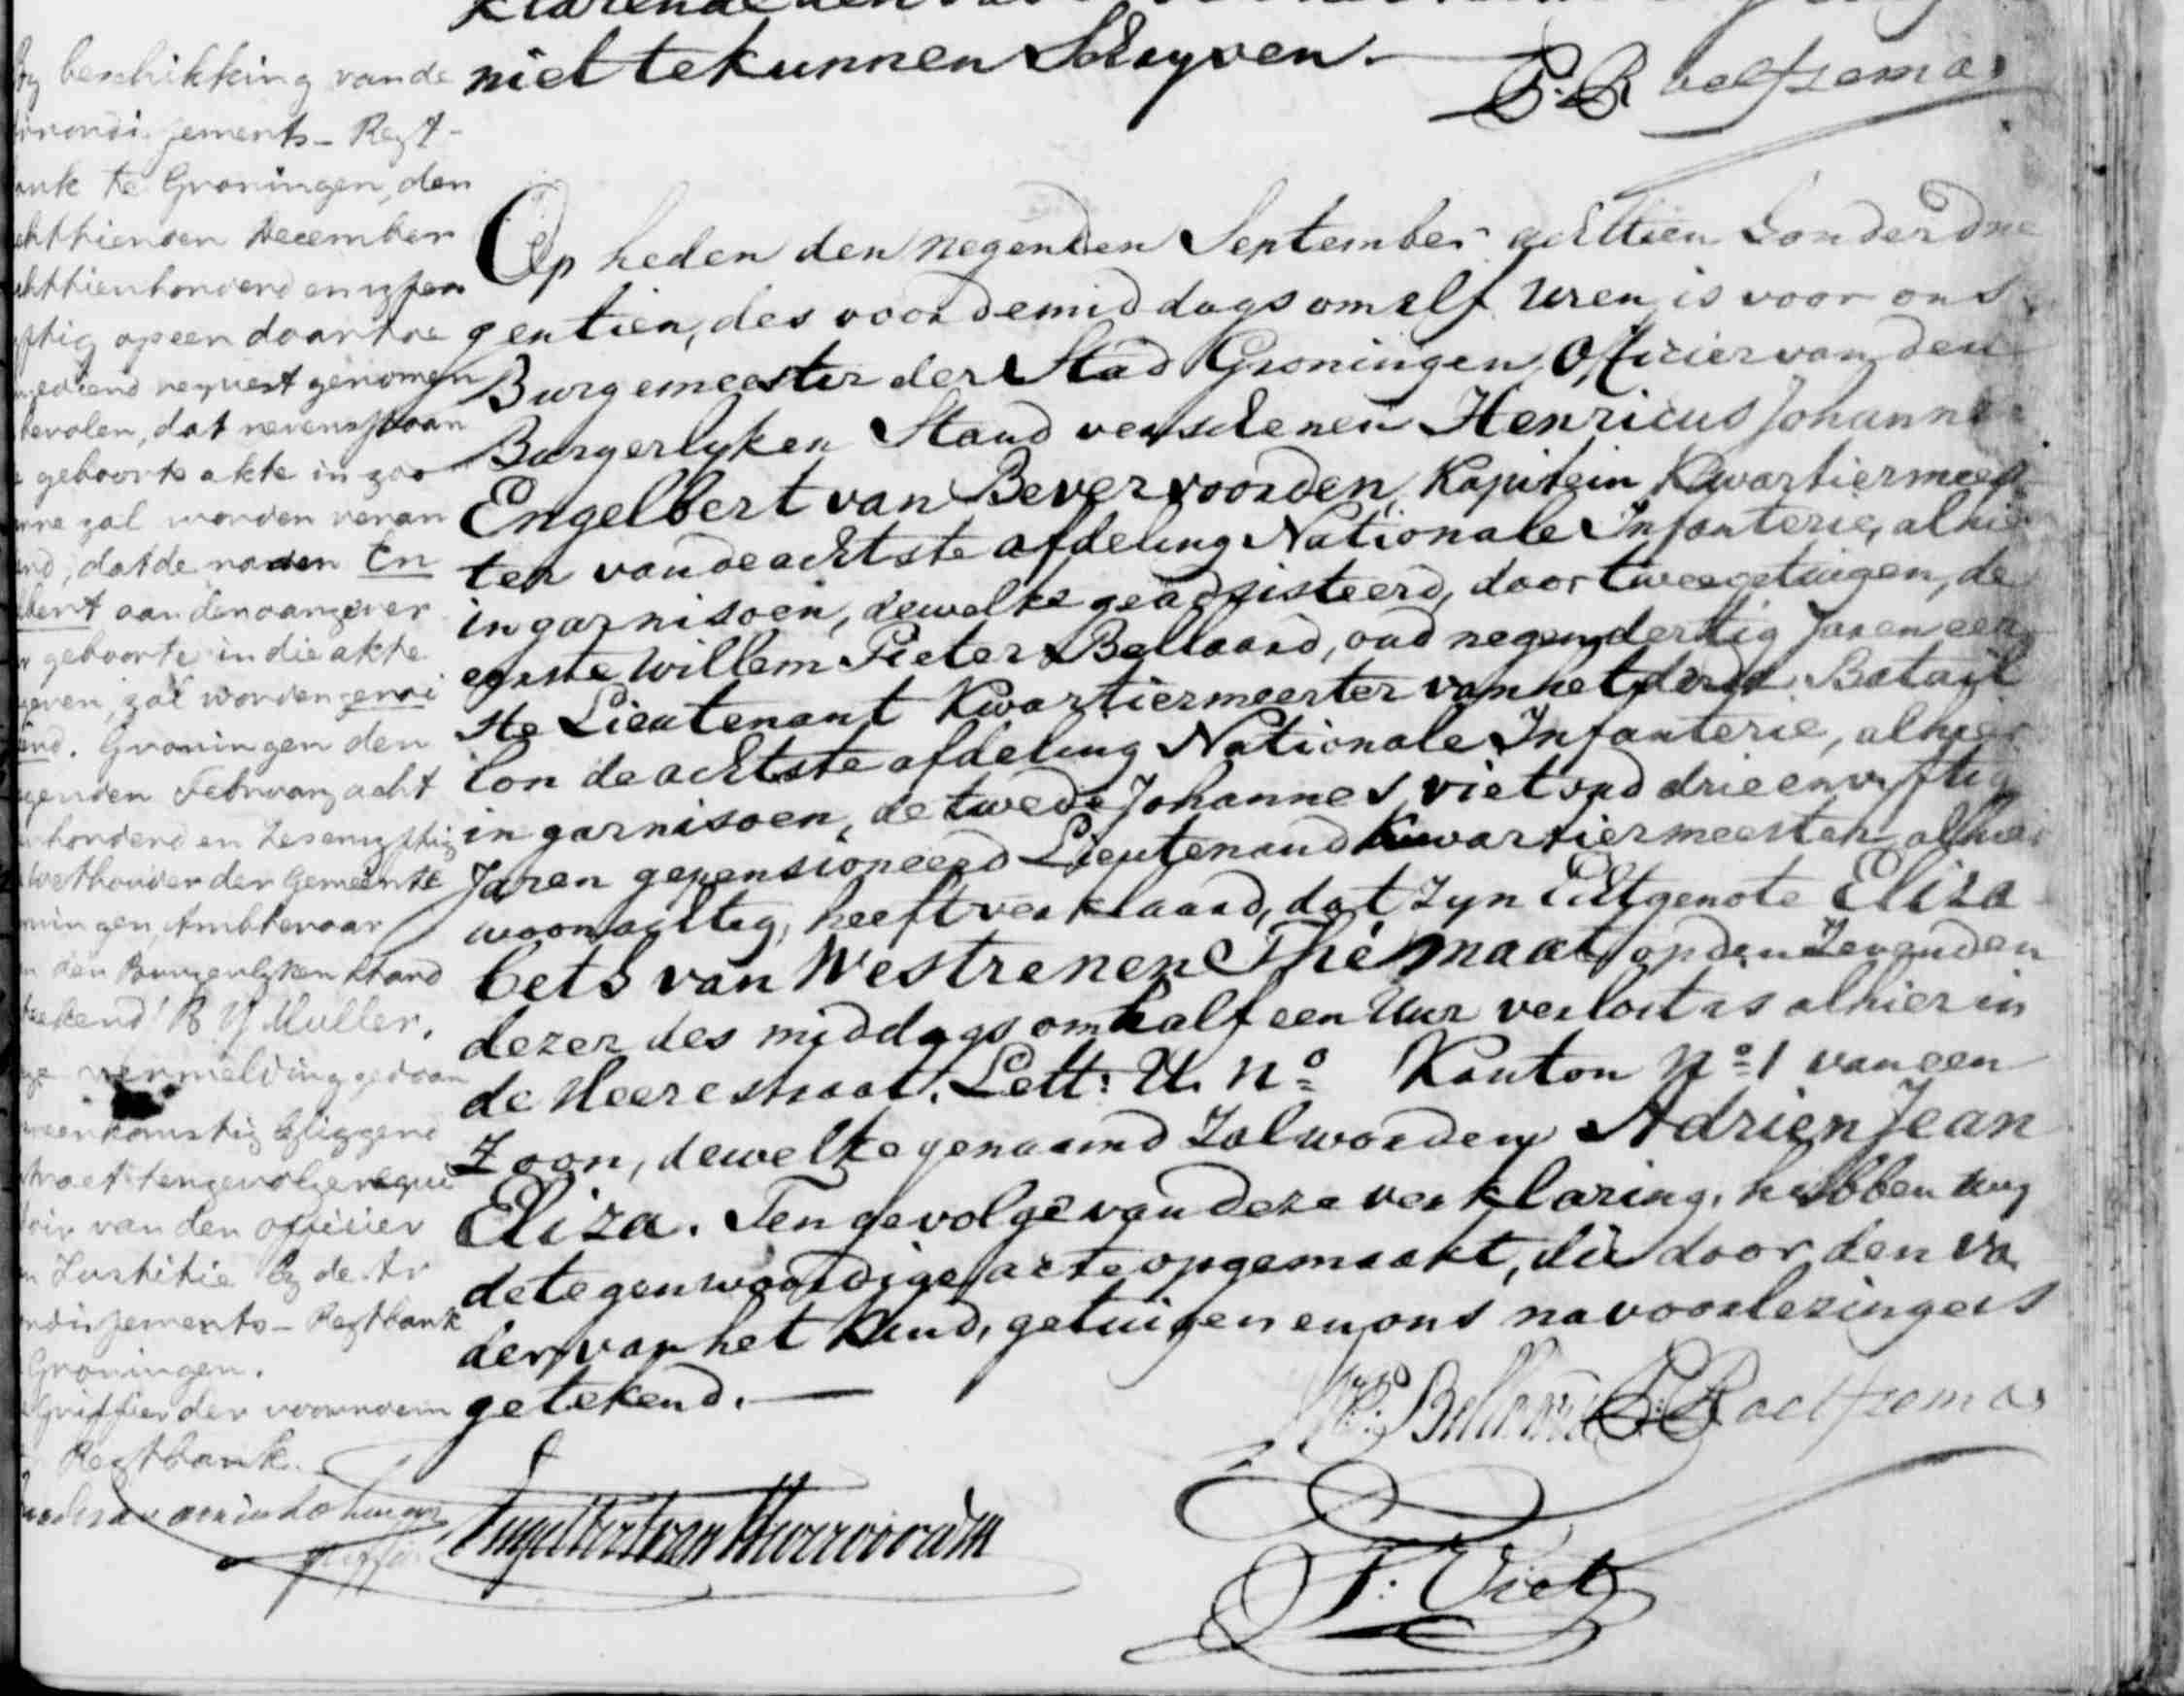 niet te kunnen Schryven.
P. Roelfzema
By beschikking van de
arrondissements-Regt-
bank te Groningen, den
achttienden December
achttienhonderd en vyfen
vyftig op een daartoe
gediend request genomen
bevolen, dat nevenstaan
de geboorte akte in zoo
verre zal worden veran
derd, dat de namen En
gelbert aan den aangever
der geboorte in die akte
gegeven, zal worden geroi
eerd. Groningen den
Februarij acht
honderd en zesenvyftig
Wethouder der Gemeente
Groningen, Ambtenaar
van den Burgerlyken Stand
geteekend R Y Muller.
vermelding gedaan
overeenkomstig
tengevolge requi
sitoir van den officier
van Justitie by de Ar
rondissements-Regtbank
Groningen.
Griffier der voornoem
de Regtbank.
Op heden den negenden September achttien honderd ne
gentien, des voordemiddags om elf Uren, is voor ons
Burgemeester der Stad Groningen, Officier van den
Burgerlyken Stand verschenen Henricus Johannes
Engelbert van Bevervoorden, Kapitein Kwartiermees
ter van de achtste afdeling Nationale Infanterie, alhier
in garnisoen, dewelke geadsisteerd, door twee getuigen, de
eerste Willem Pieter Bellaard, oud negenendertig Jaren eer
ste Lieutenant Kwartiermeester van het derde Batail
lon de achtste afdeling Nationale Infanterie, alhier
in garnisoen, de twede Johannes Viet oud drieenvyftig
Jaren gepensioneerd Lieutenand Kwartiermeester alhier
woonachtig, heeft verklaard, dat Zyn Echtgenote Eliza
beth van Westrenen Thémaat op den Zevenden
dezer des middags om half een Uur verlost is alhier in
de Heerestraat, Lett: U. No Kanton No 1 van een
Zoon, dewelke genaamd Zal worden Adrien Jean
Eliza. Ten gevolge van deze verklaring, hebben wy
de tegenwoordige acte opgemaakt, die door den Va
der van het Kind, getuigen en ons na voorlezing is
getekend.
W. P. Bellaard P. Roelfzema
Engelbert van Bevervoorden
J. Viet